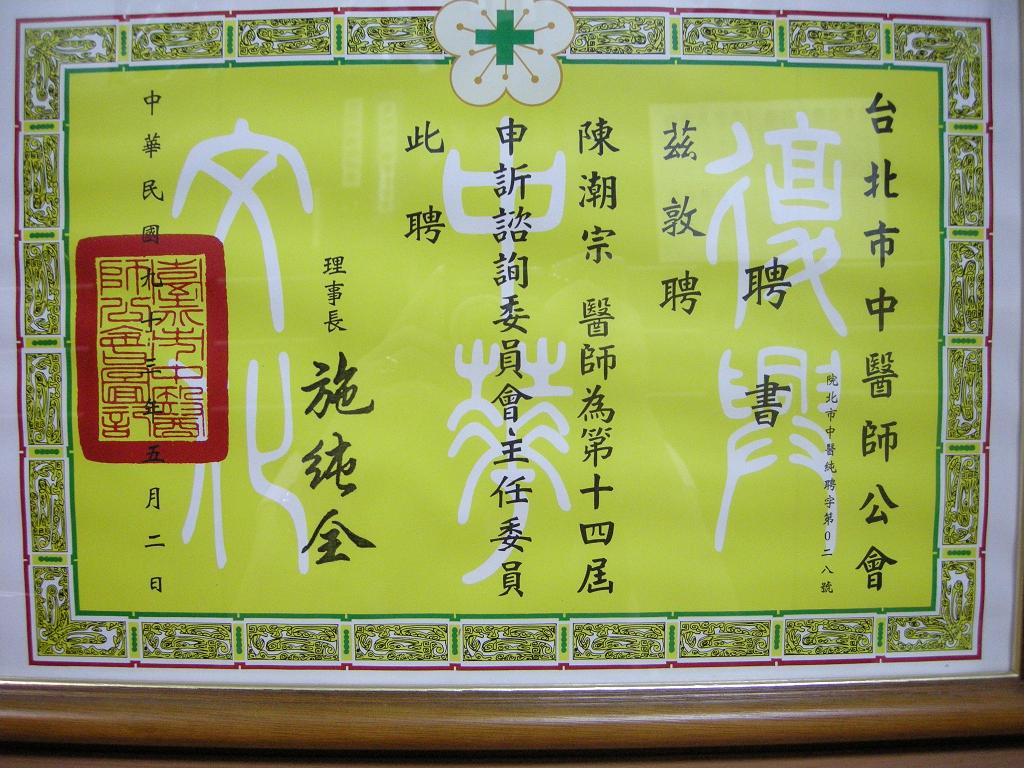 台北市中醫師公會
聘書
院北市中醫純聘字第0二八號
茲敦聘
陳潮宗 醫師為第十四屆
申訴諮詢委員會主任委員
此聘
理事長 施純全
中華民國九十三年五月二日
復興
中華
文化